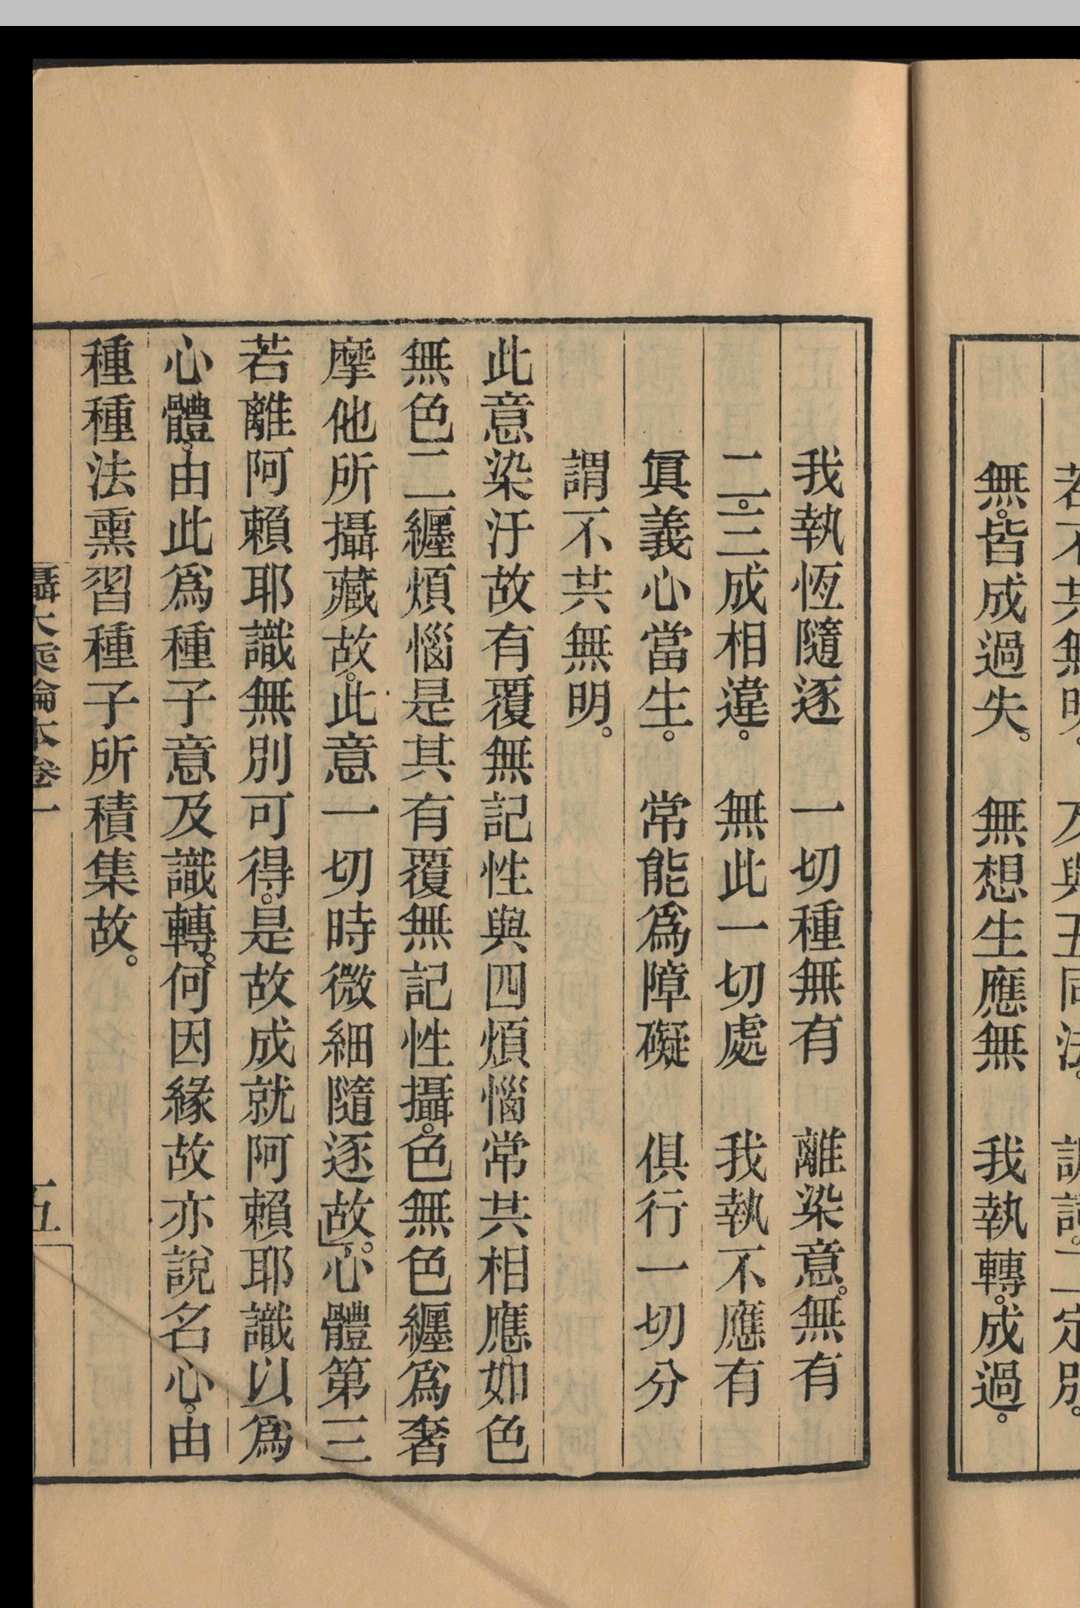 無。皆成過失。　無想生應無　我執轉。成過。
我執恆隨逐　一切種無有　離染意。無有
二。三成相違。　無此一切處　我執不應有
眞義心當生。　常能爲障礙　俱行一切分
謂不共無明。
此意染汙故有覆無記性與四煩惱常共相應。如色
無色二纏煩惱是其有覆無記性攝。色無色纏爲奢
摩他所攝藏故。此意一切時微細隨逐故。」心體第三
若離阿賴耶識無別可得。是故成就阿賴耶識以爲
心體。由此爲種子意及識轉。何因緣故亦說名心。由
種種法熏習種子所積集故。
攝大乘論本卷一　五